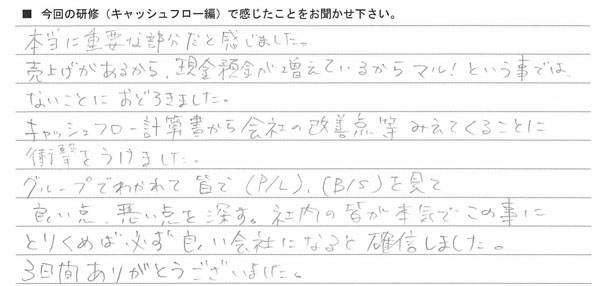 ■ 今回の研修（キャッシュフロー編）で感じたことをお聞かせ下さい。
本当に重要な部分だと感じました。
売上げがあるから、現金預金が増えているからマル！という事では、
ないことにおどろきました。
キャッシュフロー計算書から会社の改善点等みえてくることに
衝撃をうけました。
グループでわかれて皆で（P/L）、（B/S）を見て
良い点、悪い点を深す。社内の皆が本気でこの事に
とりくめば必ず良い会社になると確信しました。
3日間ありがとうございました。